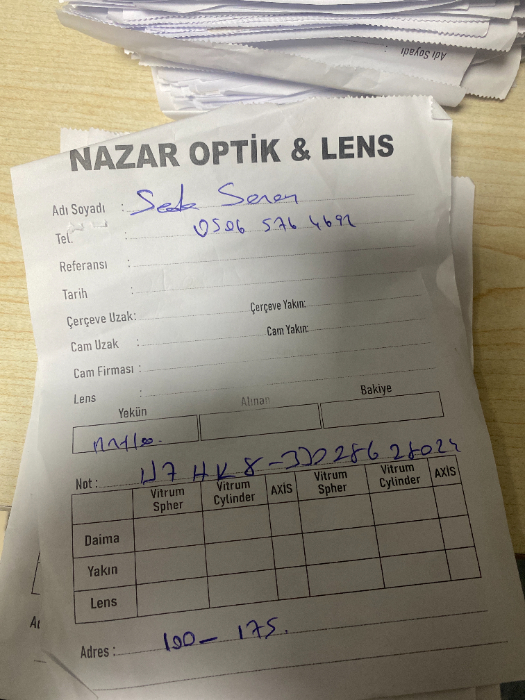 Adı Soyadı
NAZAR OPTİK & LENS
Adı Soyadı : Seda Seren
Tel. : 0506 576 4692
Referansı :
Tarih :
Çerçeve Uzak: Çerçeve Yakın:
Cam Uzak : Cam Yakın:
Cam Firması :
Lens :
Yekün Alınan Bakiye
Not : 28024
Vitrum Spher Vitrum Cylinder AXİS Vitrum Spher Vitrum Cylinder AXİS
Daima
Yakın
Lens
Adres : 100- 175.